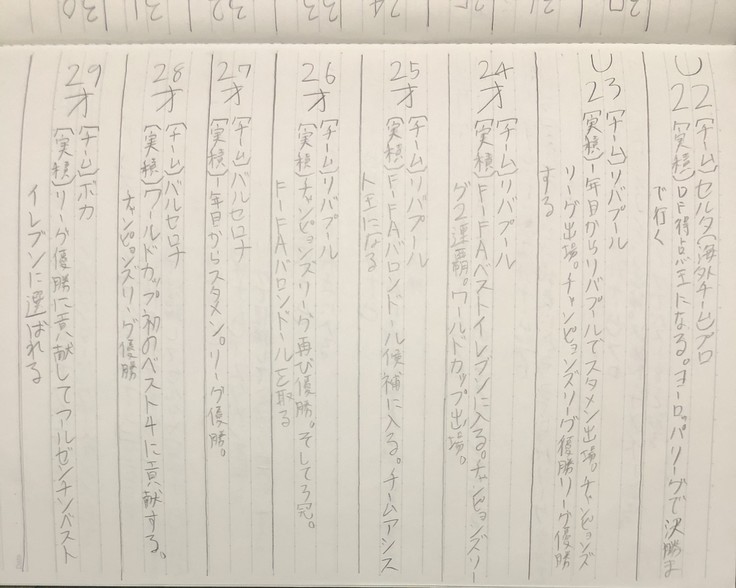 U22
[チーム]セルタ(海外チーム)プロ
[実積]DF得点王になる。ヨーロッパリーグで決勝ま
で行く
U23
[チーム]リバプール
[実積]一年目からリバプールでスタメン出場。チャンピョンズ
リーグ出場。チャンピョンズリーグ優勝リーグ優勝
する
24才
[チーム]リバプール
[実積]FIFAベストイレブンに入る。チャンピョンズリー
グ2連覇。ワールドカップ出場。
25才
[チーム]リバプール
[実積]FIFAバロンドール候補に入る。チームアシス
ト王になる
26才
[チーム]リバプール
[実積]チャンピョンズリーグ再び優勝。そして3冠。
FIFAバロンドールを取る
27才
[チーム]バルセロナ
[実積]一年目からスタメン。リーグ優勝。
28才
[チーム]バルセロナ
[実積]ワールドカップ初のベスト4に貢献する。
チャンピョンズリーグ優勝
29才
[チーム]ボカ
[実積]リーグ優勝に貢献してアルゼンチンベスト
イレブンに選ばれる